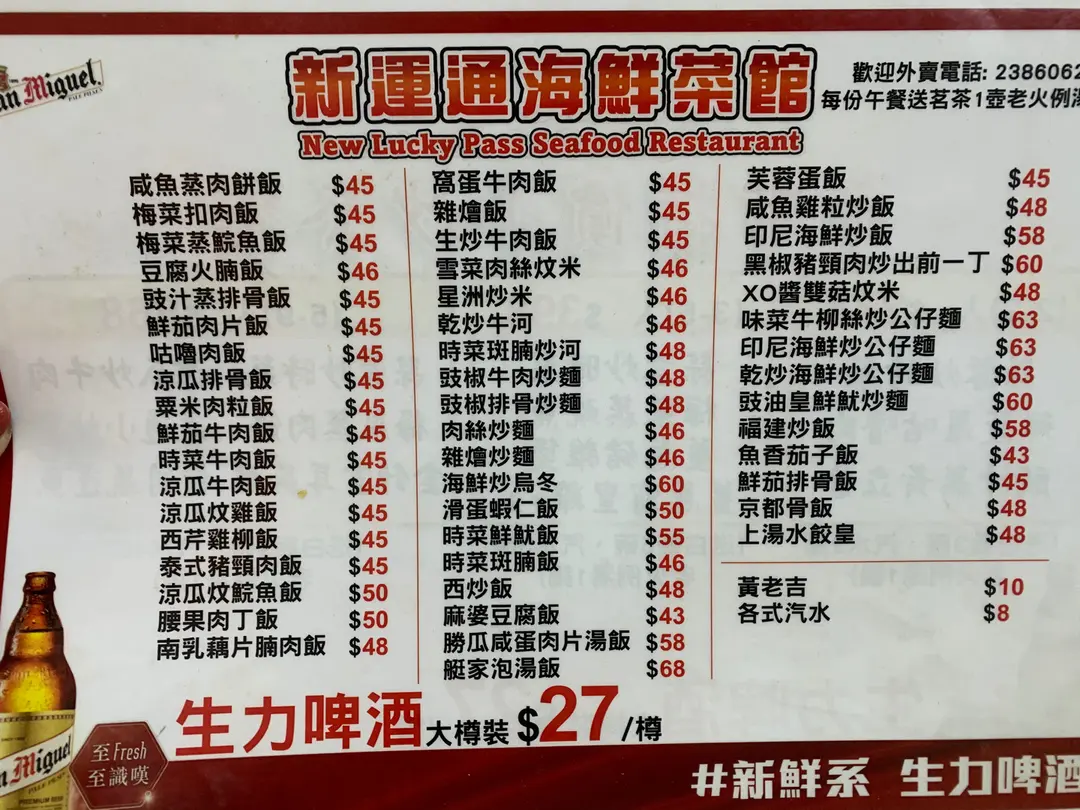 San Miguel
PALE PILSEN
新運通海鮮菜館
New Lucky Pass Seafood Restaurant
歡迎外賣電話: 2386062
每份午餐送茗茶1壺老火例湯
咸魚蒸肉餅飯 $45
梅菜扣肉飯 $45
梅菜蒸鯇魚飯 $45
豆腐火腩飯 $46
豉汁蒸排骨飯 $45
鮮茄肉片飯 $45
咕嚕肉飯 $45
涼瓜排骨飯 $45
粟米肉粒飯 $45
鮮茄牛肉飯 $45
時菜牛肉飯 $45
涼瓜牛肉飯 $45
涼瓜炆雞飯 $45
西芹雞柳飯 $45
泰式豬頸肉飯 $45
涼瓜炆鯇魚飯 $50
腰果肉丁飯 $50
南乳藕片腩肉飯 $48
窩蛋牛肉飯 $45
雜燴飯 $45
生炒牛肉飯 $45
雪菜肉絲炆米 $46
星洲炒米 $46
乾炒牛河 $46
時菜斑腩炒河 $48
豉椒牛肉炒麵 $48
豉椒排骨炒麵 $48
肉絲炒麵 $46
雜燴炒麵 $46
海鮮炒烏冬 $60
滑蛋蝦仁飯 $50
時菜鮮魷飯 $55
時菜斑腩飯 $46
西炒飯 $48
麻婆豆腐飯 $43
勝瓜咸蛋肉片湯飯 $58
艇家泡湯飯 $68
芙蓉蛋飯 $45
咸魚雞粒炒飯 $48
印尼海鮮炒飯 $58
黑椒豬頸肉炒出前一丁 $60
XO醬雙菇炆米 $48
味菜牛柳絲炒公仔麵 $63
印尼海鮮炒公仔麵 $63
乾炒海鮮炒公仔麵 $63
豉油皇鮮魷炒麵 $60
福建炒飯 $58
魚香茄子飯 $43
鮮茄排骨飯 $45
京都骨飯 $48
上湯水餃皇 $48
黃老吉 $10
各式汽水 $8
生力啤酒大樽裝 $27/樽
至Fresh
至識嘆
San Miguel
PALE PILSEN
PREMIUM BEER
#新鮮系 生力啤酒